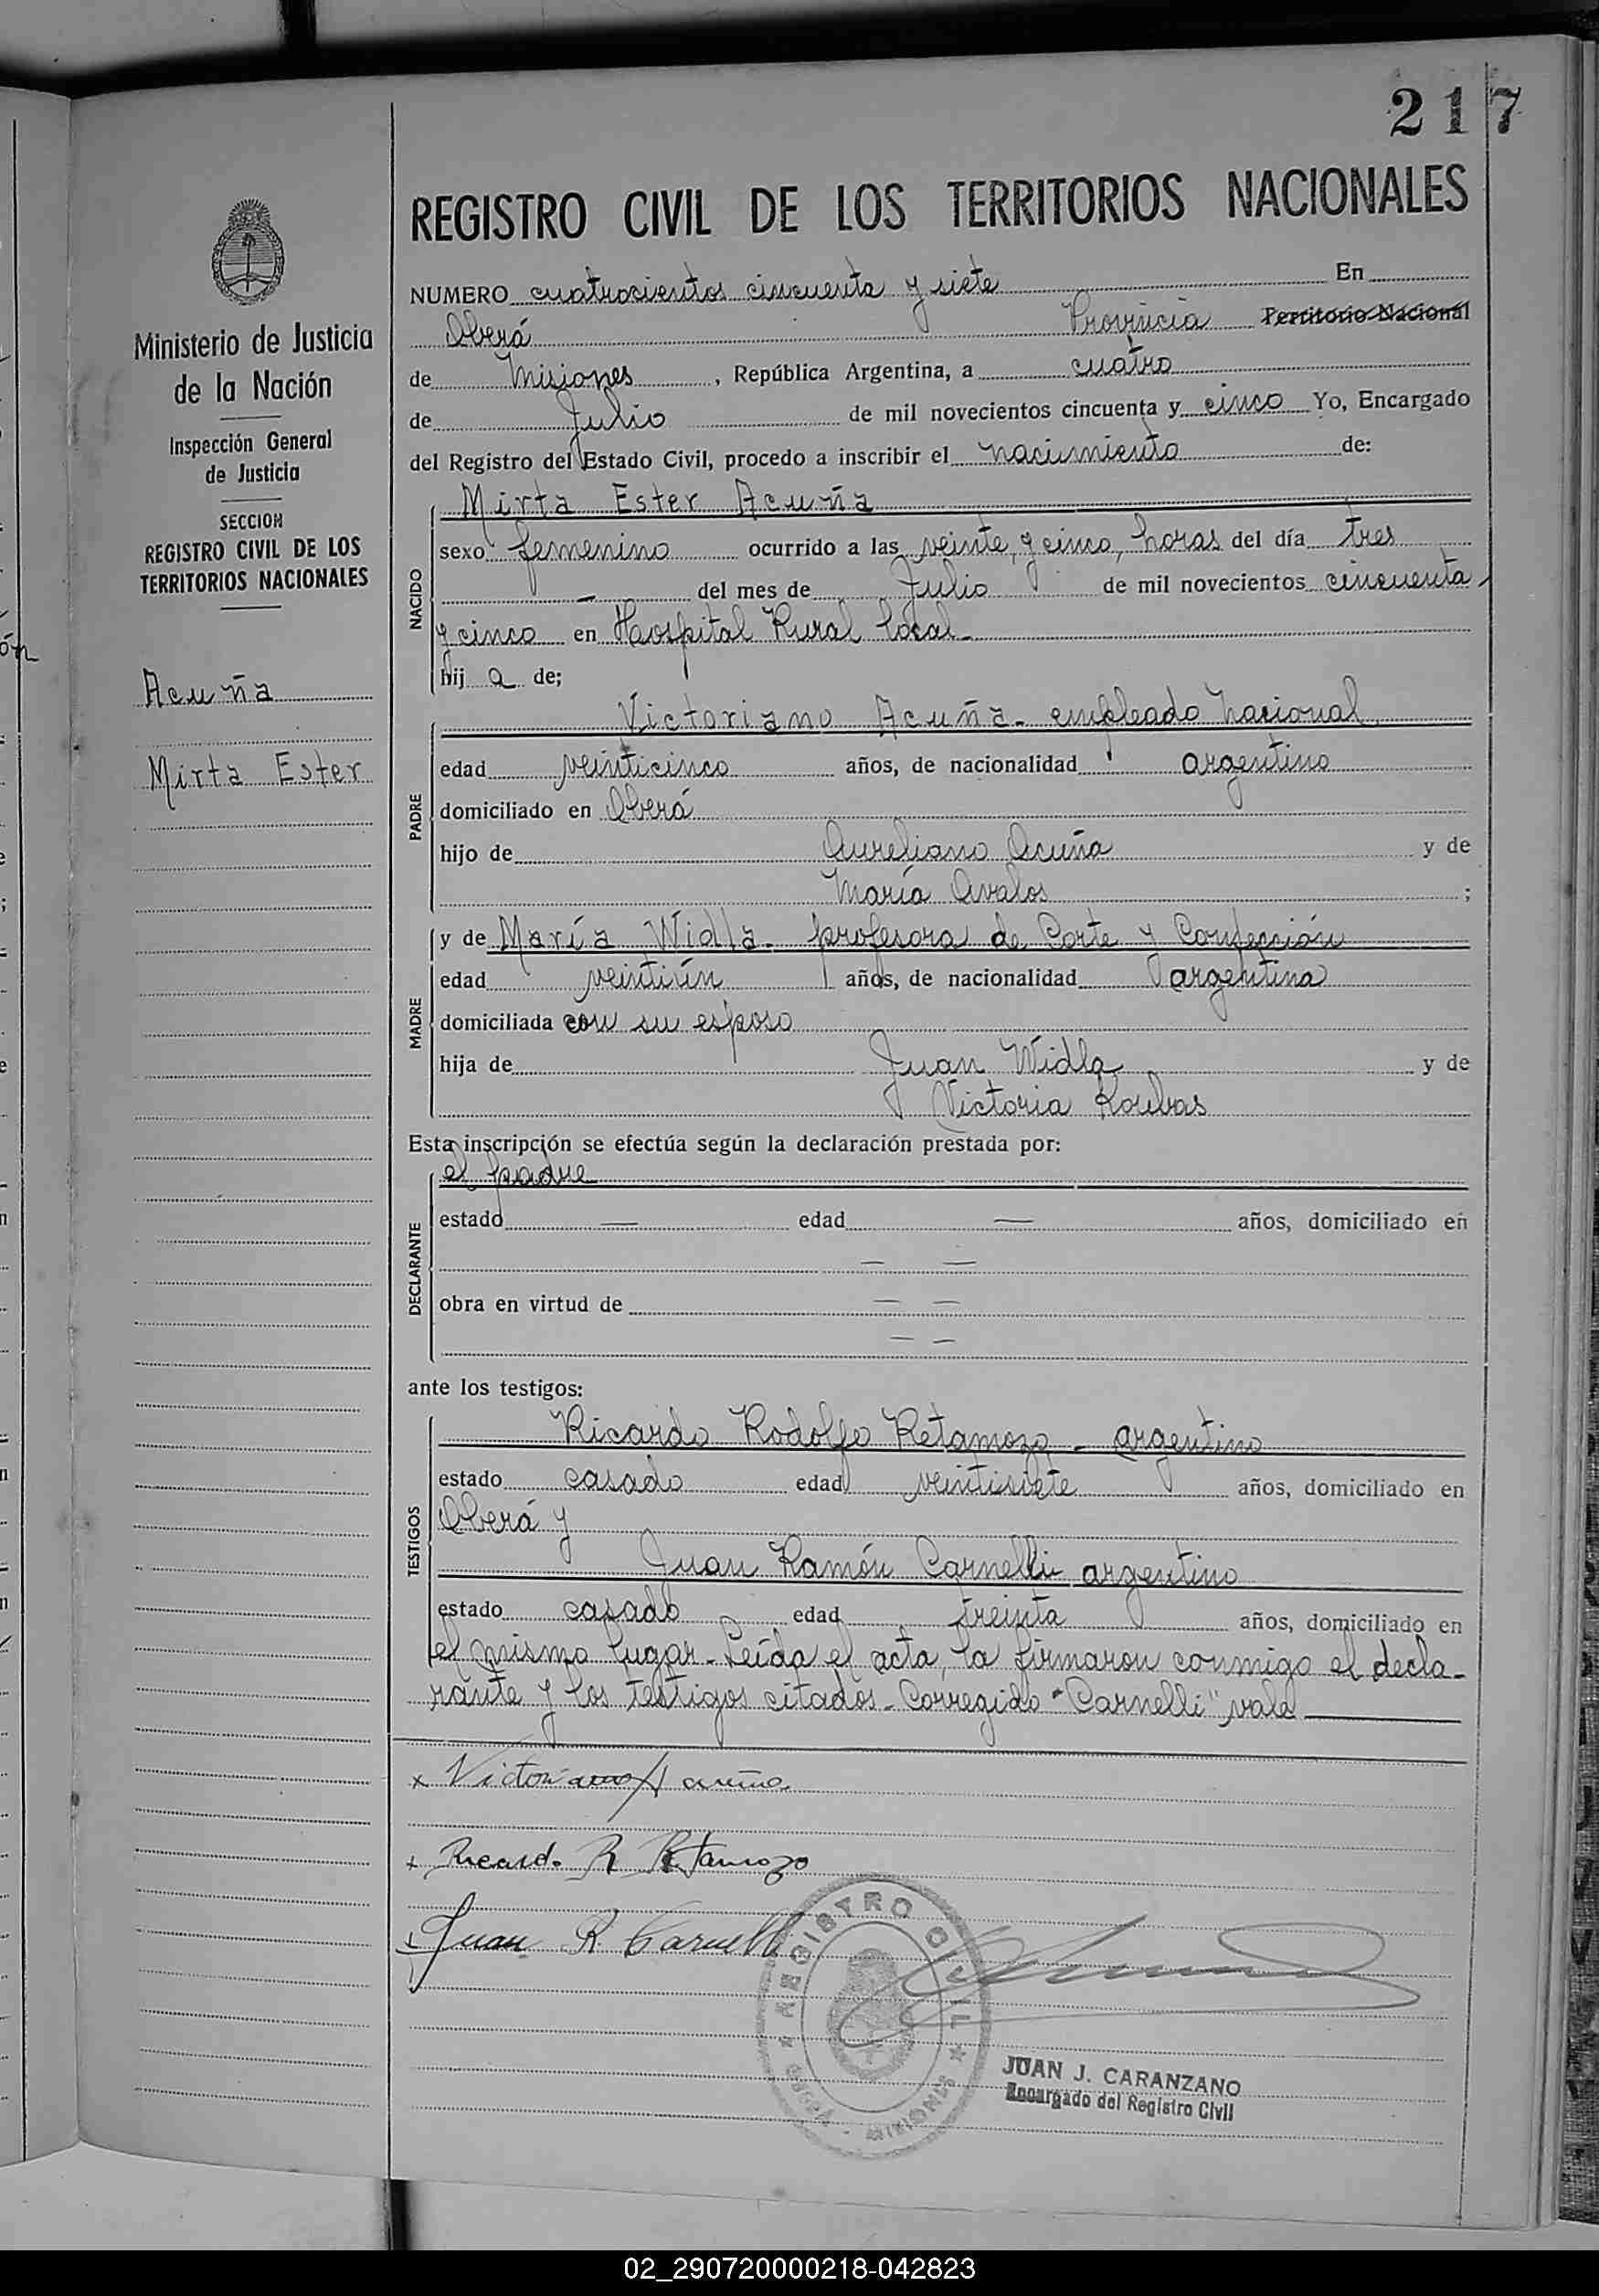 217
REGISTRO CIVIL DE LOS TERRITORIOS NACIONALES
Ministerio de Justicia
de la Nación
Inspección General
de Justicia
SECCION
REGISTRO CIVIL DE LOS
TERRITORIOS NACIONALES
Acuña
Mirta Ester
NUMERO cuatrocientos cincuenta y siete En
Oberá Provincia Territorio Nacional
de Misiones, República Argentina, a cuatro
de Julio de mil novecientos cincuenta y cinco Yo, Encargado
del Registro del Estado Civil, procedo a inscribir el nacimiento de:
NACIDO
Mirta Ester Acuña
sexo femenino ocurrido a las veinte y cinco, horas del día tres
— del mes de Julio de mil novecientos cincuenta
y cinco en Hospital Rural local-
hij a de;
PADRE
Victoriano Acuña - empleado nacional
edad veinticinco años, de nacionalidad argentino
domiciliado en Oberá
hijo de Aureliano Acuña y de
María Avalos ;
MADRE
y de María Widla - profesora de Corte y Confección
edad veintiún años, de nacionalidad argentina
domiciliada con su esposo
hija de Juan Widla y de
Victoria
Esta inscripción se efectúa según la declaración prestada por:
DECLARANTE
el padre
estado — edad — años, domiciliado en
— —
obra en virtud de — —
— —
ante los testigos:
TESTIGOS
Ricardo Rodolfo Retamozo - argentino
estado casado edad veintisiete años, domiciliado en
Oberá y
Juan Ramón Carnelli argentino
estado casado edad treinta años, domiciliado en
el mismo lugar - Leída el acta, la firmaron conmigo el decla-
rante y los testigos citados - Corregido "Carnelli" vale
x Victoriano Acuña
x Ricardo R Retamozo
x Juan R. Carnelli
REGISTRO CIVIL
OBERA - MISIONES
JUAN J. CARANZANO
Encargado del Registro Civil
02_290720000218-042823